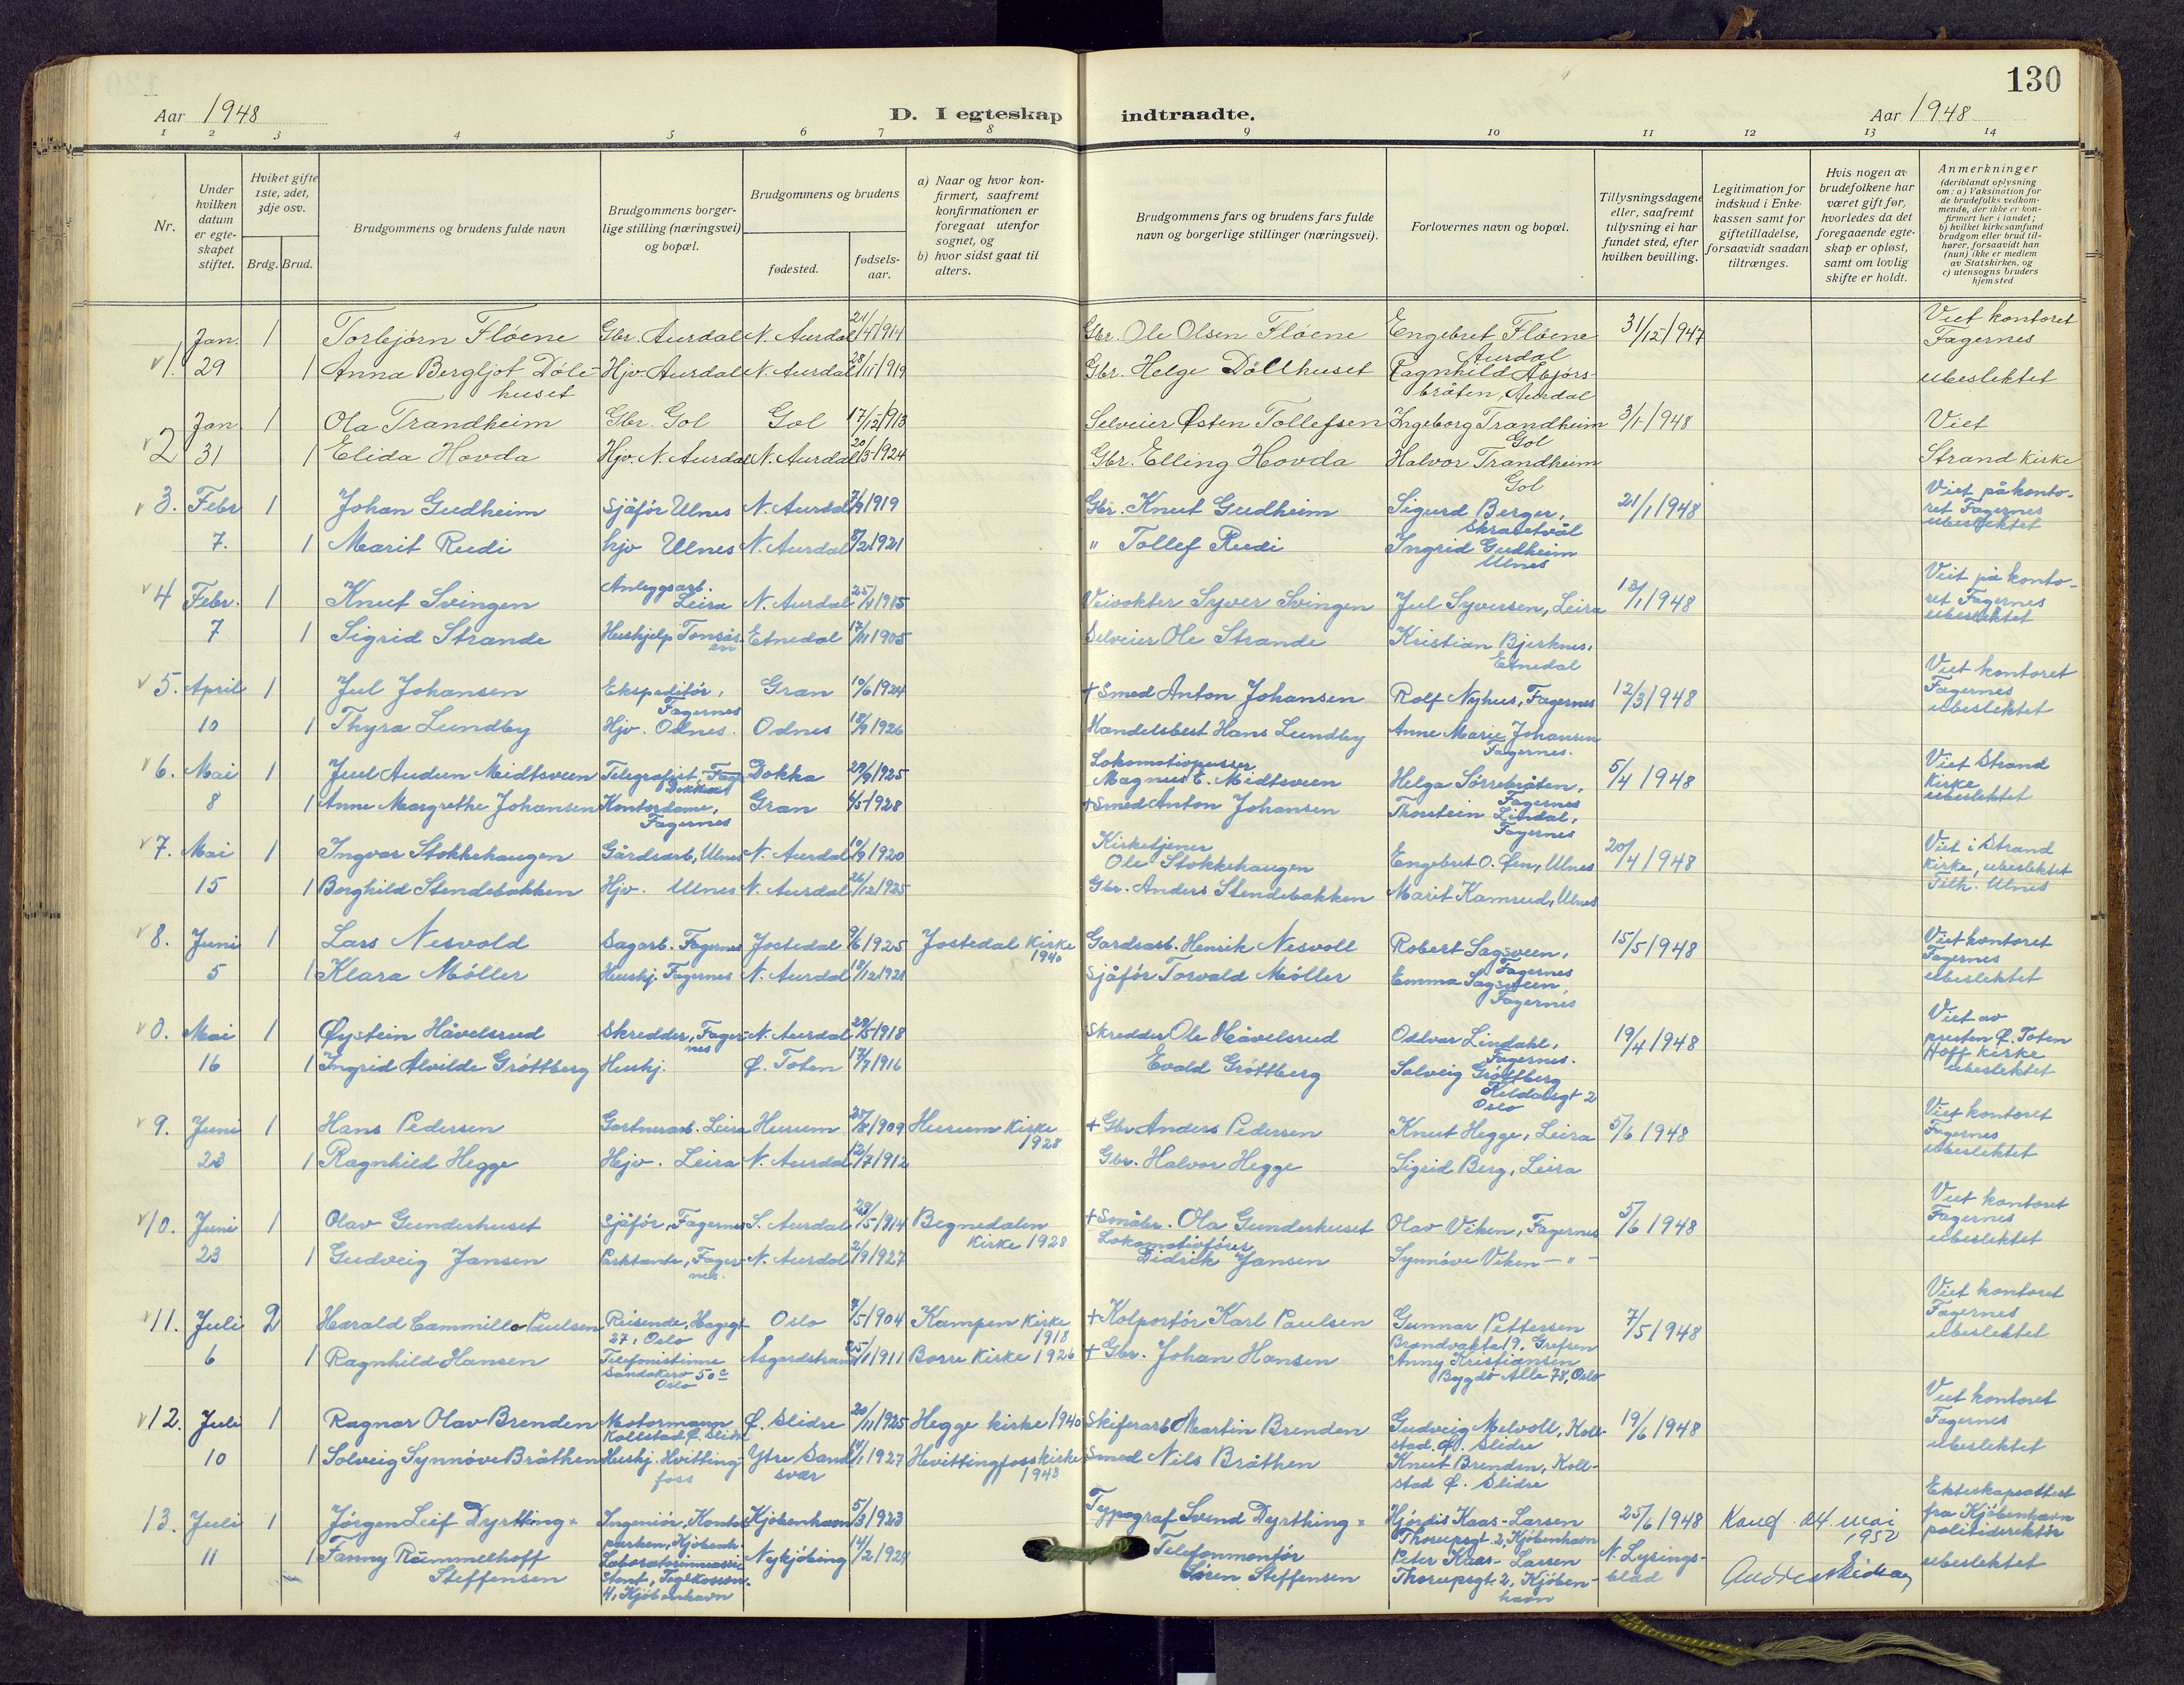 130
Aar 1948
D. I egteskap indtraadte.
Aar 1948
1 2 3 4 5 6 7 8 9 10 11 12 13 14
Nr.
Under hvilken datum er egte-skapet stiftet.
Hvilket gifte 1ste, 2det, 3dje osv.
Brdg. Brud.
Brudgommens og brudens fulde navn
Brudgommens borger-lige stilling (næringsvei) og bopæl.
Brudgommens og brudens
fødested.
fødsels-aar.
a) Naar og hvor kon-firmert, saafremt konfirmationen er foregaat utenfor sognet, og
b) hvor sidst gaat til alters.
Brudgommens fars og brudens fars fulde navn og borgerlige stillinger (næringsvei).
Forlovernes navn og bopæl.
Tillysningsdagene eller, saafremt tillysning ei har fundet sted, efter hvilken bevilling.
Legitimation for indskud i Enke-kassen samt for giftetilladelse, forsaavidt saadan tiltrænges.
Hvis nogen av brudefolkene har været gift før, hvorledes da det foregaaende egte-skap er opløst, samt om lovlig skifte er holdt.
Anmerkninger (deriblandt oplysning om: a) Vaksination for de brudefolks vedkom-mende, der ikke er kon-firmert her i landet; b) hvilket kirkesamfund brudgom eller brud til-hører, forsaavidt han (hun) ikke er medlem av Statskirken, og c) utensogns bruders hjemsted
Jan. 1 Torbjørn Fløene Gbr. Aurdal N. Aurdal 21/4 1914 Gbr. Ole Olsen Fløene Engebret Fløene Aurdal 31/12 1947 Viet kontoret Fagernes
1. 29 1 Anna Bergljot Döle-huset Hjv. Aurdal N. Aurdal 28/11 1919 Gbr. Helge Döllhuset Ragnhild Abjørs-bråten, Aurdal ubeslektet
Jan 1 Ola Trandheim Gbr. Gol Gol 17/12 1913 Selveier Østen Tollefsen Ingeborg Trandheim Gol 3/1 1948 Viet
2 31 1 Elida Hovda Hjv. N. Aurdal N. Aurdal 20/3 1924 Gbr. Elling Hovda Halvor Trandheim Gol Strand kirke
3. Febr 1 Johan Gudheim Sjåfør Ulnes N. Aurdal 7/9 1919 Gbr. Knut Gudheim Sigurd Berger, Skrautvål 21/1 1948 Viet på konto-ret Fagernes ubeslektet
7. 1 Marit Rudi hjv Ulnes N. Aurdal 8/2 1921 " Tollef Rudi Ingrid Gudheim Ulnes
4 Febr. 1 Knut Svingen Anleggsarb. Leira N. Aurdal 25/4 1915 Veivokter Syver Svingen Jul Syversen, Leira 13/1 1948 Viet på konto-ret Fagernes ubeslektet
7 1 Sigrid Strande Hushjelp Tonsås-en Etnedal 17/11 1905 Selveier Ole Strande Kristian Bjerknes, Etnedal
5. April 1 Jul Johansen Ekspeditör, Fagernes Gran 10/6 1924 + Smed Anton Johansen Rolf Nyhus, Fagernes 12/3 1948 Viet kontoret Fagernes ubeslektet
10 1 Thyra Lundby Hjv. Odnes. Odnes 18/9 1926 Handelsbest Hans Lundby Anne Marie Johansen Fagernes.
6. Mai 1 Juul Audun Midtsveen Telegrafist, Dokka Dokka 29/9 1925 Lokomotivpusser Magnus E. Midtsveen Helga Sørrebråten, Fagernes 5/4 1948 Viet Strand kirke ubeslektet
8 1 Anne Margrethe Johansen Kontordame, Fagernes Gran 4/5 1928 + Smed Anton Johansen Thorstein Lindal, Fagernes
7. Mai 1 Ingvar Stokkehaugen Gårdsarb, Ulnes N. Aurdal 10/9 1920 Kirketjener Ole Stokkehaugen Engebret O. Øen, Ulnes 20/4 1948 Viet i Strand kirke, ubeslektet Tilh. Ulnes
15 1 Borghild Stendebakken Hjv. Ulnes N. Aurdal 26/12 1925 Gbr. Anders Stendebakken Marit Kamrud, Ulnes
8. Juni 1 Lars Nesvold Sagarb. Fagernes Jostedal 9/6 1925 Jostedal Kirke 1940 Gardsarb. Henrik Nesvoll Robert Sagsveen, Fagernes 15/5 1948 Viet kontoret Fagernes ubeslektet
5 1 Klara Möller Hushj. Fagernes N. Aurdal 18/12 1921 Sjåfør Torvald Möller Emma Sagsveen, Fagernes
0. Mai 1 Øystein Håvelsrud Skredder, Fager-nes N. Aurdal 29/5 1918 Skredder Ole Håvelsrud Odlvar Lindahl, Fagernes. 19/4 1948 Viet av presten Ø. Toten Hoff kirke ubeslektet
16 1 Ingrid Alvilde Gröttberg Hushj. Ø. Toten 17/7 1916 Evald Gröttberg Solveig Gröttberg 2 Oslo
9. Juni 1 Hans Pedersen Gartnerarb. Leira Hurum 25/8 1909 Hurum Kirke 1928 + Gbr. Anders Pedersen Knut Hegge, Leira 5/6 1948 Viet kontoret Fagernes ubeslektet
23 1 Ragnhild Hegge Hjv. Leira N. Aurdal 12/7 1912 Gbr. Halvor Hegge Sigrid Berg, Leira
10. Juni 1 Olav Gunderhuset Sjåför, Fagernes S. Aurdal 29/5 1914 Begnedalen kirke 1928 + Småbr. Ola Gunderhuset Olav Viken, Fagernes 5/6 1948 Viet kontoret Fagernes ubeslektet
23 1 Gudveig Jansen Parktante, Fager-nes. N. Aurdal 2/9 1927 Lokomotivförer Didrik Jansen Synnöve Viken - " -
11. Juli 2 Harald Cammillo Paulsen Reisende, Hagegt 27, Oslo Oslo 7/5 1904 Kampen Kirke 1918 + Kolportör Karl Paulsen Gunnar Pettersen Brandvakta 19, Grefsen 7/5 1948 Viet kontoret Fagernes ubeslektet
6 1 Ragnhild Hansen Telefonistinne Sandakerv 50c Oslo Åsgårdstrand 25/1 1911 Borre Kirke 1926 + Gbr. Johan Hansen Anny Kristiansen Bygdö Alle 78, Oslo
12. Juli 1 Ragnar Olav Brenden Motormann Kollstad Ø. Slidre Ø. Slidre 20/11 1925 Hegge kirke 1940 Skiferarb Martin Brenden Gudveig Melvoll, Koll-stad. Ø. Slidre 19/6 1948 Viet kontoret Fagernes ubeslektet
10 1 Solveig Synnöve Bråthen Hushj. Hvitting-foss Ytre Sand-svær 14/1 1927 Hvittingfoss kirke 1943 Smed Nils Bråthen Knut Brenden, Koll-stad Ø. Slidre
13. Juli 1 Jørgen Leif Dyrthing = Ingeniör, Kjöbenh. Kjöbenhavn 5/3 1923 Typograf Svend Dyrthing = Hjördis Kaas-Larsen Thorupsgt. 2, Kjöbenhavn 25/6 1948 24. mai 1952 Ekteskapsattest fra Kjöbenhavn politidirektör
11 1 Fanny Römmelhoff Steffensen 4, Kjöbenhavn Nykjöbing 14/2 1924 Telefonmontör Sören Steffensen Peter Kaas-Larsen Thorupsgt. 2, Kjöben-havn N. Lysings-blad ubeslektet